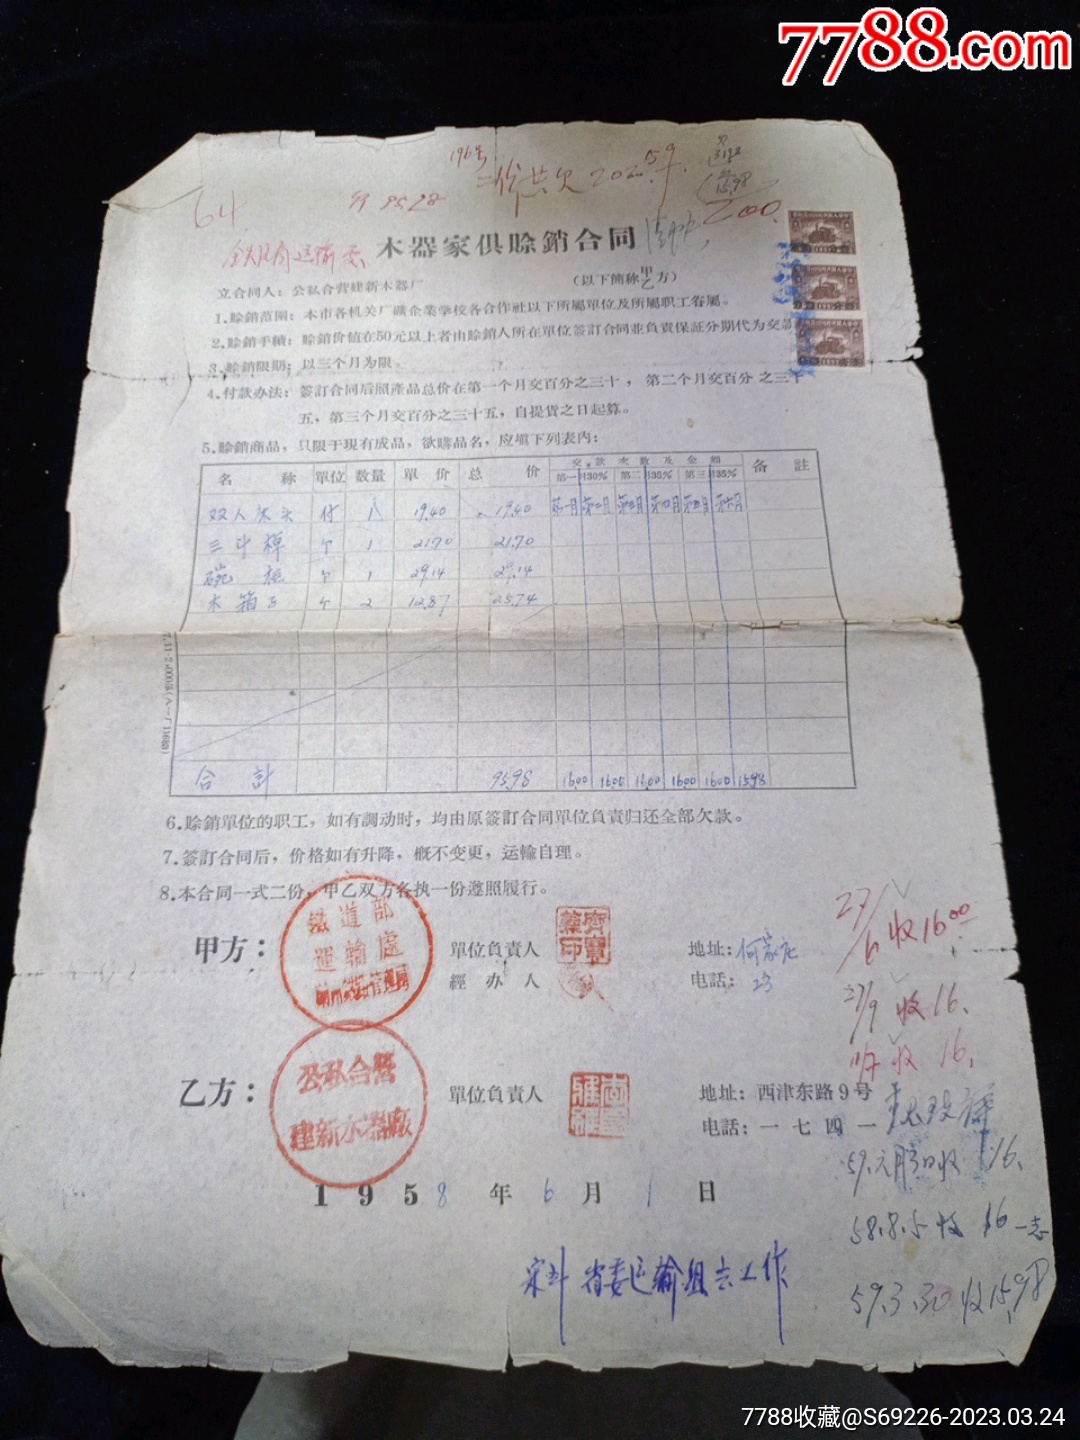 7788.com
64
木器家俱賒銷合同
200.
立合同人：公私合营建新木器厂
（以下簡称甲乙方）
1.賒銷范圍：本市各机关厂礦企業学校各合作社以下所屬單位及所屬职工眷屬。
2.賒銷手續：賒銷价值在50元以上者由賒銷人所在單位簽訂合同並負責保証分期代为交
3.賒銷限期：以三个月为限。
4.付款办法：簽訂合同后照產品总价在第一个月交百分之三十，第二个月交百分之三十
五，第三个月交百分之三十五，自提貨之日起算。
5.賒銷商品，只限于現有成品，欲購品名，应填下列表內：
名称 單位 数量 單价 总价 交款次数及金額 备註
第一月30% 第二月35% 第三月35%
双人床头 付 1 19.40 19.40 第一月 第二月 第三月 第四月 第五月 第六月
三斗桌 个 1 21.70 21.70
碗柜 个 1 29.14 29.14
木箱子 个 2 12.87 25.74
合計 95.98 16.00 16.00 16.00 16.00 16.00 15.98
6.賒銷單位的职工，如有調动时，均由原簽訂合同單位負責归还全部欠款。
7.簽訂合同后，价格如有升降，概不变更，运輸自理。
8.本合同一式二份，甲乙双方各执一份遵照履行。
甲方：
鐵道部
運輸處
單位負責人
經办人
地址：何家庄
电話：23
27/6 收16.00
27/9 收16.
收16.
乙方：
公私合营
建新木器廠
單位負責人
地址：西津东路9号
电話：一七四一
59.元月 收 16.
58.8.5收 16
59.3.30收15.98
1958年6月1日
省委运輸組去工作
7788收藏@S69226-2023.03.24